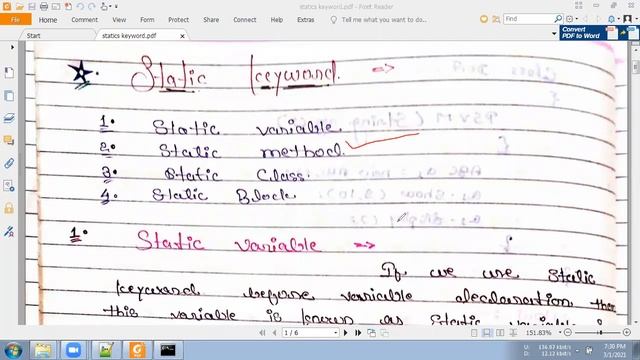 statics keyword.pdf - Foxit Reader
File Home Comment View Form Protect Share Help Extras
Tell me what you want to do...
Find
Start
statics keyword.pdf
Convert
PDF to Word!
Static keyword =>
1. Static variable
2. Static method
3. Static Class
4. Static Block
1. Static variable =>
If we use static
keyword before variable declaration then
this variable is known as static variable
1 / 6
151.83%
U: 136.97 kbit/s
D: 12.12 kbit/s
7:30 PM
3/1/2021